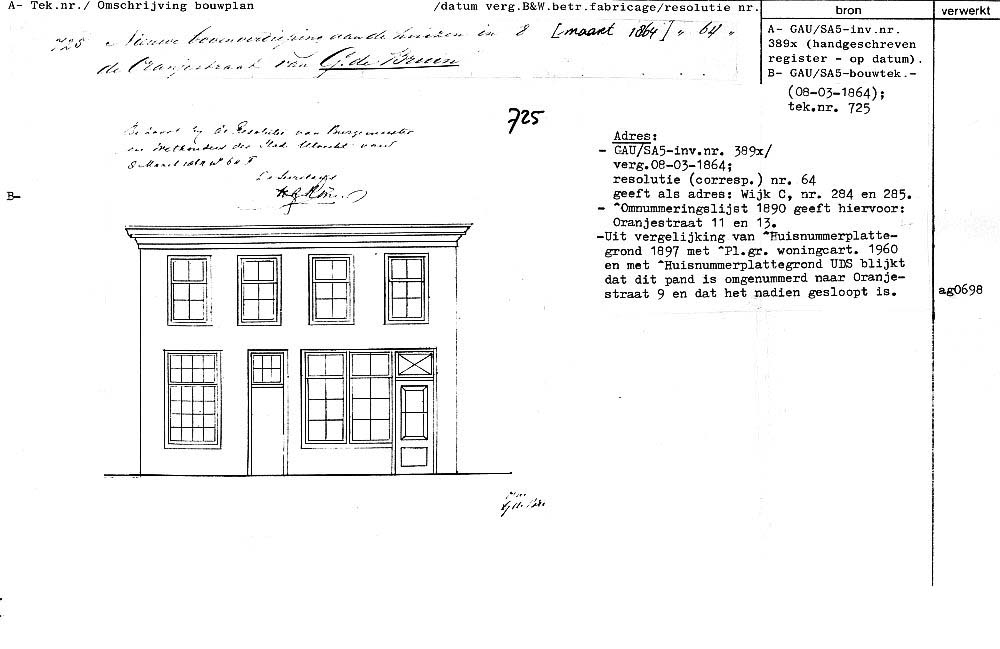 A- Tek.nr./ Omschrijving bouwplan /datum verg.B&W.betr.fabricage/resolutie nr.
bron
verwerkt
725 Nieuwe bovenverdieping van de huizen in 8 [maart 1864] „ 64 „
de Oranjestraat van G. de Bruin
A- GAU/SA5-inv.nr.
389x (handgeschreven
register - op datum).
B- GAU/SA5-bouwtek.-
(08-03-1864);
tek.nr. 725
725
Behoort bij de Resolutie van Burgemeester
en Wethouders der Stad Utrecht van
8 Maart 1864 No 64 F
De Secretaris
B-
Adres:
- GAU/SA5-inv.nr. 389x/
verg.08-03-1864;
resolutie (corresp.) nr. 64
geeft als adres: Wijk C, nr. 284 en 285.
- ^Omnummeringslijst 1890 geeft hiervoor:
Oranjestraat 11 en 13.
-Uit vergelijking van ^Huisnummerplatte-
grond 1897 met ^Pl.gr. woningcart. 1960
en met ^Huisnummerplattegrond UDS blijkt
dat dit pand is omgenummerd naar Oranje-
straat 9 en dat het nadien gesloopt is.
ag0698